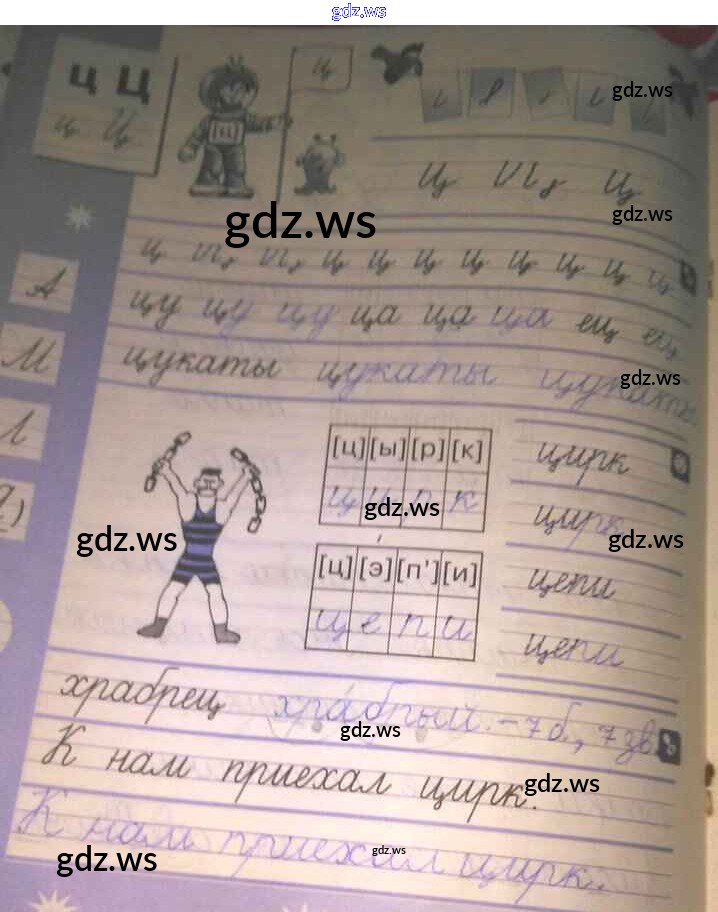 gdz.ws
ц Ц
ц Ц
[ц]
ц
gdz.ws
ц Ц
gdz.ws
gdz.ws
ц ц ц ц ц ц ц ц
А
цу цу цу ца ца ца ец ец
М
цукаты цукаты цукаты
gdz.ws
Л
[ц] [ы] [р] [к]
ц и р к
gdz.ws
цирк
цирк
gdz.ws
gdz.ws
[ц] [э] [п'] [и]
ц е п и
цепи
цепи
храбрец храбрый. – 7 б., 7 зв.
gdz.ws
К нам приехал цирк.
gdz.ws
К нам приехал цирк.
gdz.ws
gdz.ws